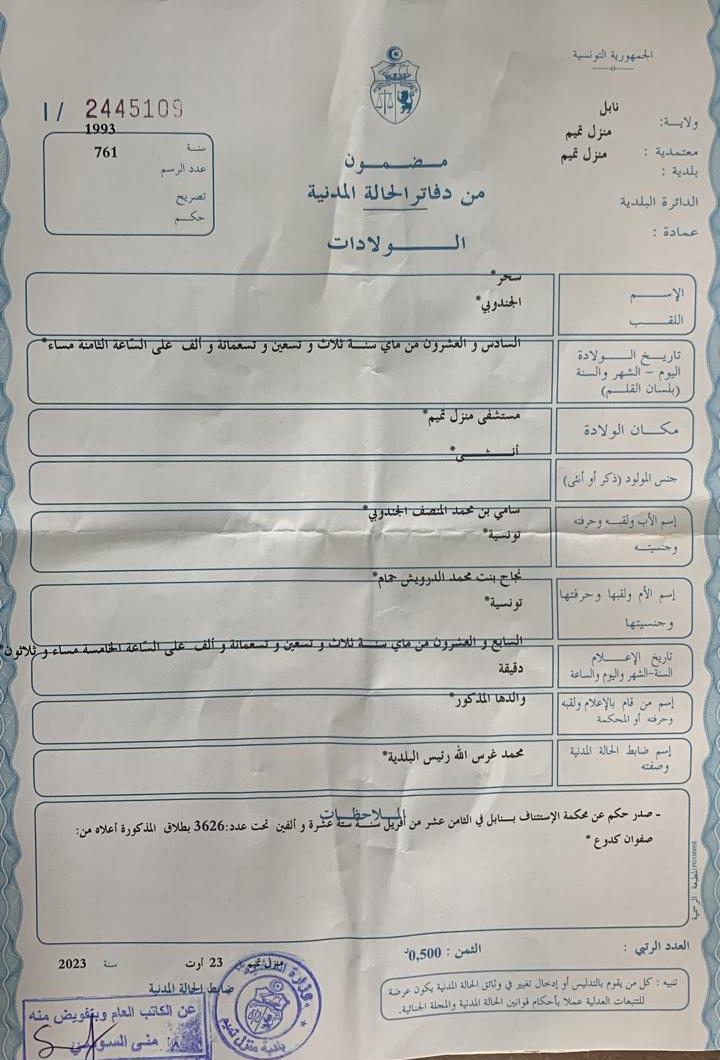 الجمهورية التونسية
ولاية: نابل
معتمدية : منزل تميم
بلدية : منزل تميم
الدائرة البلدية
عمادة :
I/ 2445109
سنة 1993
عدد الرسم 761
تصريح
حكم
مضمون
من دفاتر الحالة المدنية
الولادات
الإسم سحر*
اللقب الجندوبي*
تاريخ الولادة
اليوم – الشهر والسنة
(بلسان القلم)
السادس و العشرون من ماي سنة ثلاث و تسعين و تسعمائة و ألف على السّاعة الثامنة مساء*
مكان الولادة مستشفى منزل تميم*
جنس المولود (ذكر أو أنثى) أنثى*
إسم الأب ولقبه وحرفته
وجنسيته
سامي بن محمد المنصف الجندوبي*
تونسية*
إسم الأم ولقبها وحرفتها
وجنسيتها
نجاح بنت محمد الدرويش حمام*
تونسية*
تاريخ الإعلام
السنة-الشهر واليوم والساعة
السابع و العشرون من ماي سنة ثلاث و تسعين و تسعمائة و ألف على السّاعة الخامسة مساء و ثلاثون*
دقيقة
إسم من قام بالإعلام ولقبه
وحرفته أو المحكمة
والدها المذكور*
إسم ضابط الحالة المدنية
وصفته
محمد غرس الله رئيس البلدية*
الملاحظات
- صدر حكم عن محكمة الإستئناف بنابل في الثامن عشر من أفريل سنة ستة عشرة و ألفين تحت عدد:3626 بطلاق المذكورة أعلاه من:
صفوان كدوع *
المطبعة الرسمية
العدد الرتبي :
الثمن : 0,500د
منزل تميم 23 أوت سنة 2023
ضابط الحالة المدنية
تنبيه : كل من يقوم بالتدليس أو إدخال تغيير في وثائق الحالة المدنية يكون عرضة
للتتبعات العدلية عملا بأحكام قوانين الحالة المدنية والمجلة الجنائية.
بلدية منزل تميم
عن الكاتب العام وبتفويض منه
منى السويسي